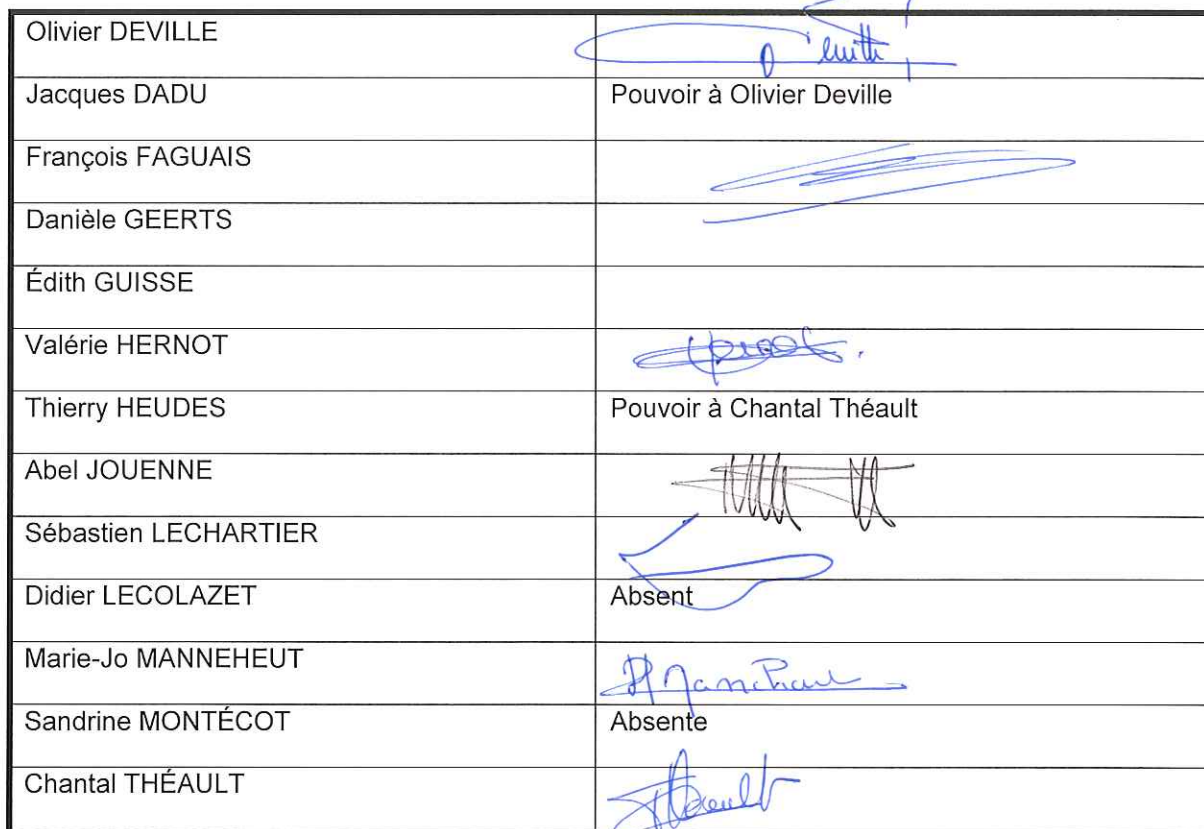 Olivier DEVILLE
Jacques DADU Pouvoir à Olivier Deville
François FAGUAIS
Danièle GEERTS
Édith GUISSE
Valérie HERNOT
Thierry HEUDES Pouvoir à Chantal Théault
Abel JOUENNE
Sébastien LECHARTIER
Didier LECOLAZET Absent
Marie-Jo MANNEHEUT
Sandrine MONTÉCOT Absente
Chantal THÉAULT